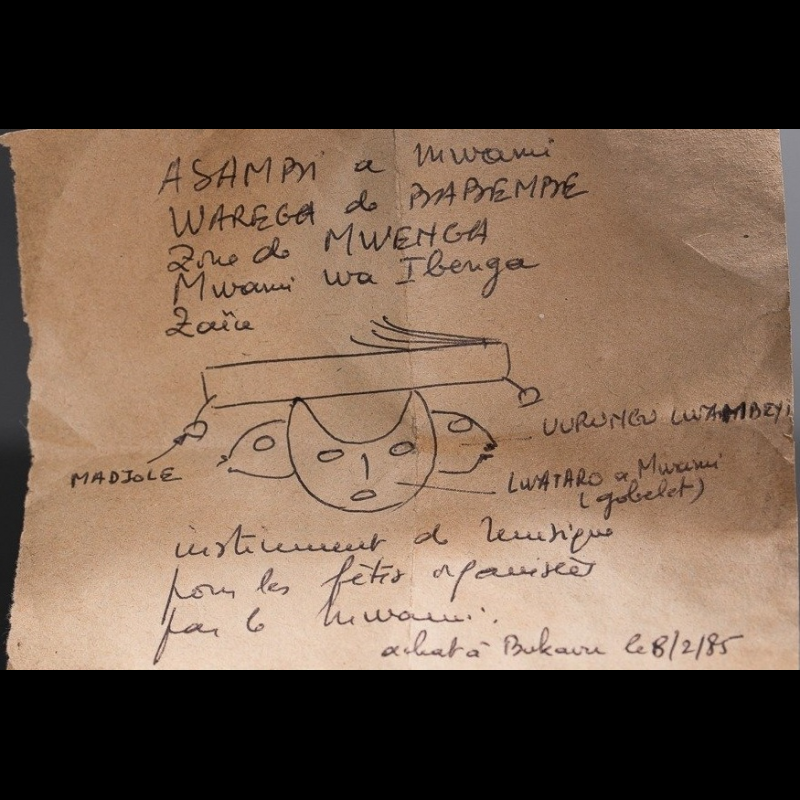 ASAMBI a Mwami
WAREGA de BABEMBE
Zone de MWENGA
Mwami wa Ibenga
Zaïre
MADJOLE
LWATARO a Mwami
(gobelet)
instrument de musique
pour les fêtes organisées
par le Mwami.
achat à Bukavu le 8/2/85